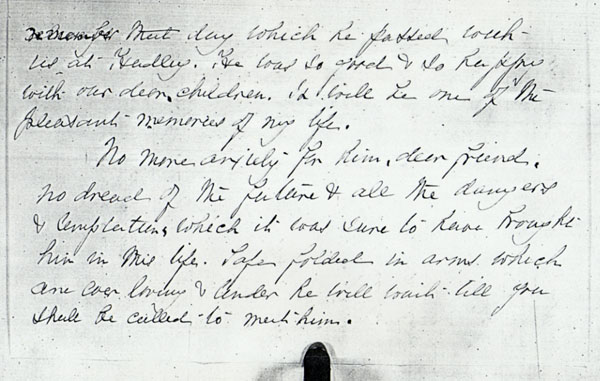 remember that day which he passed with
us at Hadley. He was so good & so happy
with our dear children. It will be one of the
pleasant memories of my life.
No more anxiety for him, dear friend,
no dread of the future & all the dangers
& temptations which it was sure to have brought
him in this life. Safe folded in arms which
are ever loving & tender he will wait till you
shall be called to meet him.